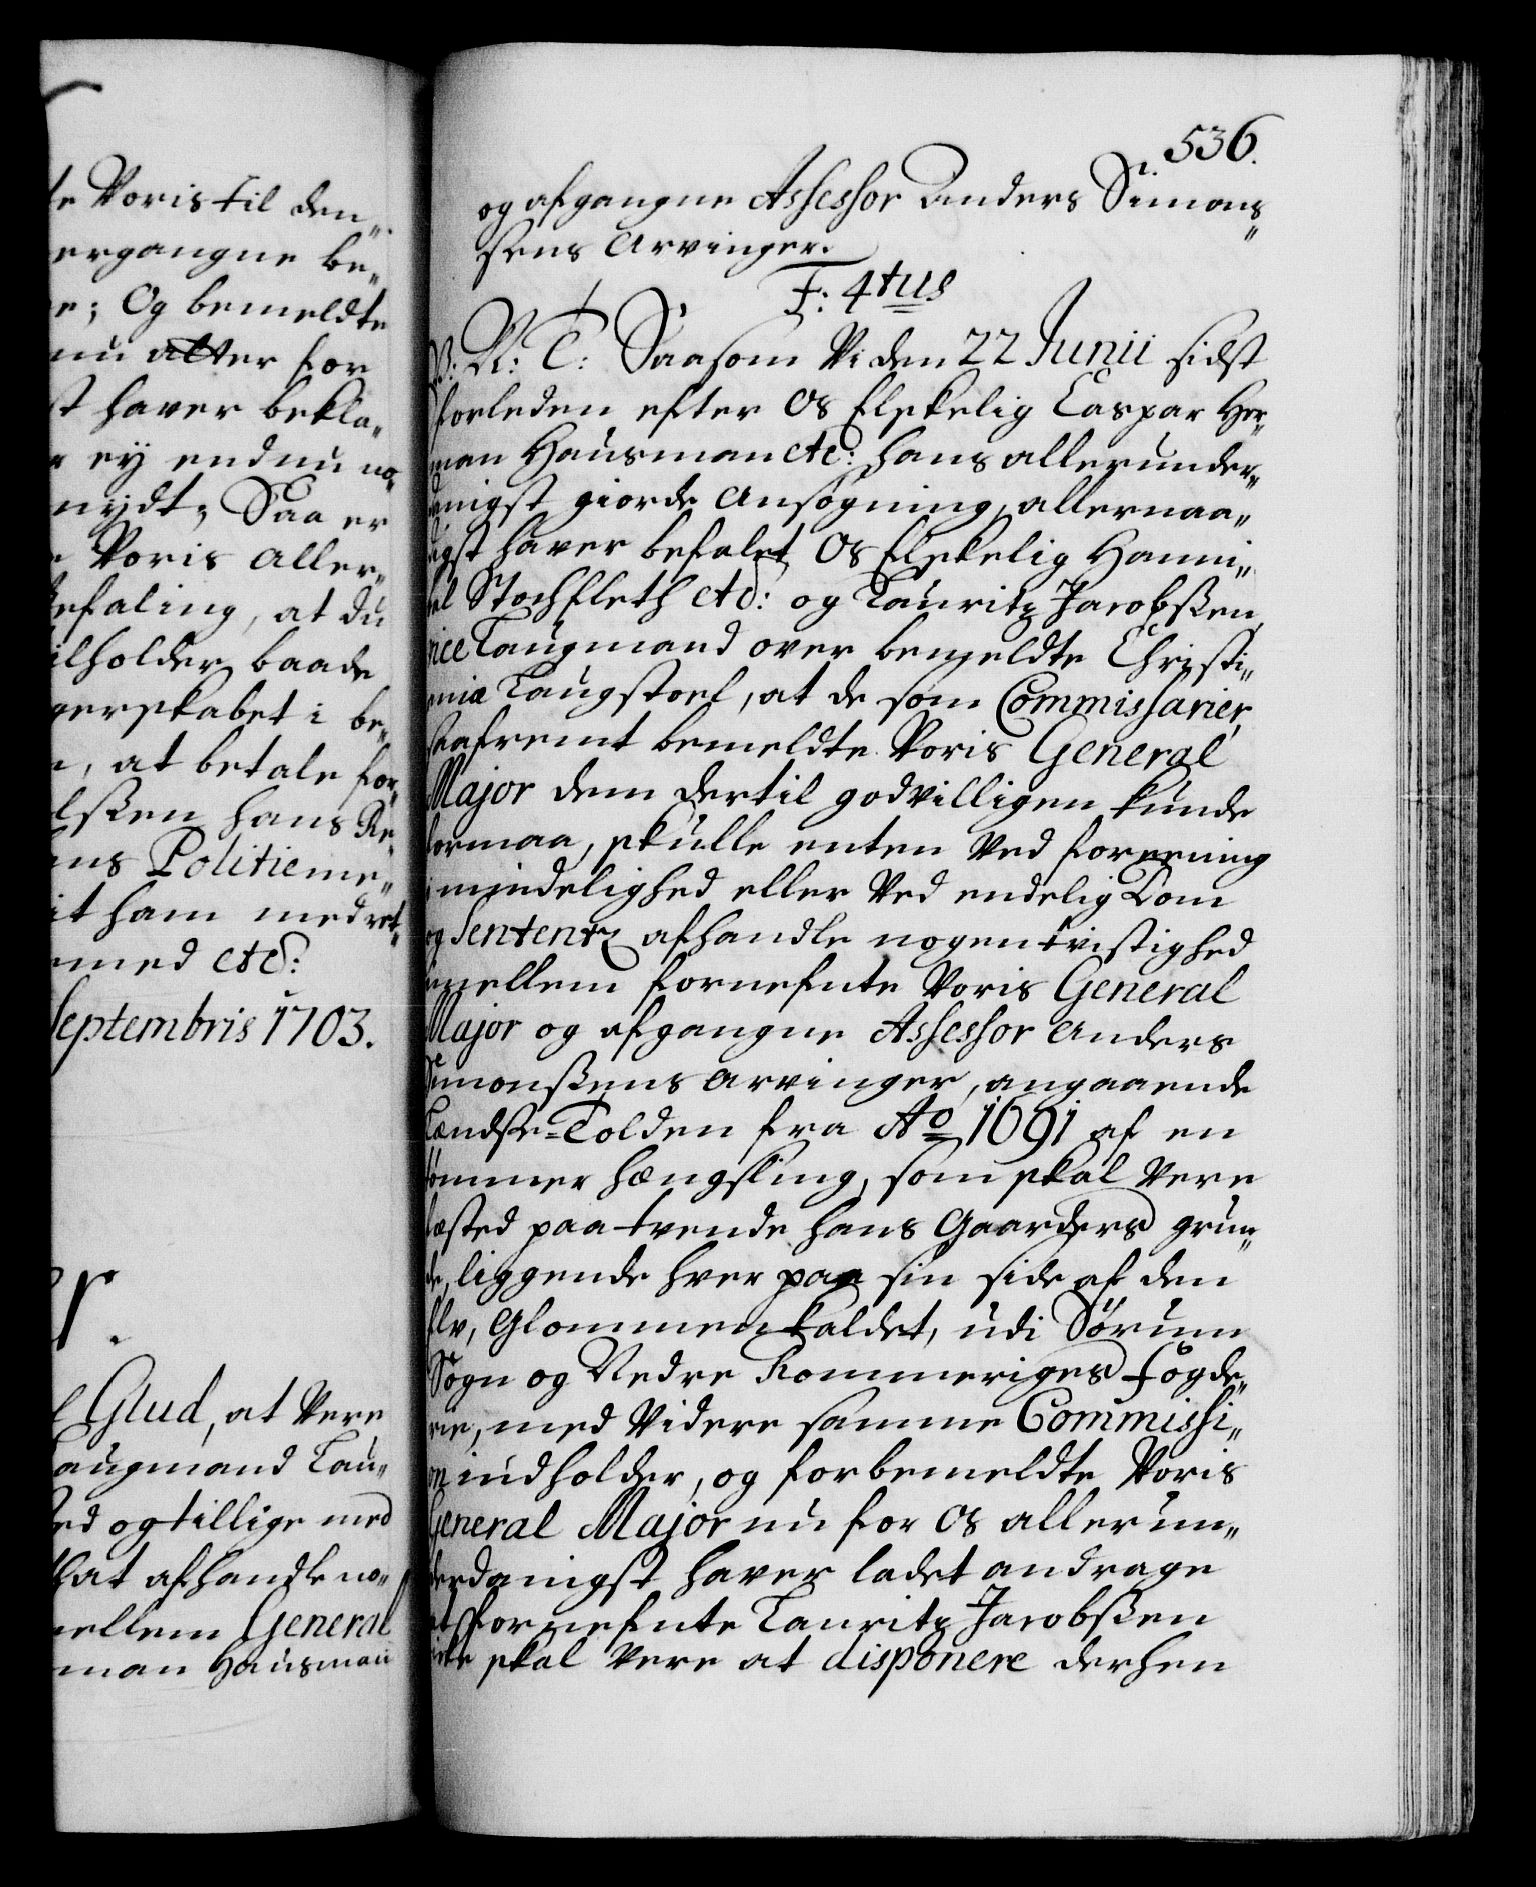 te Voris til den„
ergangne be„
e; Og bemeldte
nu atter for
st haver bekla„
r ey endnu no„
nydt; Saa er
e Voris Aller„
befaling, at du
ilholder baade
gerskabet i be„
n, at betale for„
lßen hans Re„
ans Politieme„
it ham med ret„
med etc:
Septembris 1703.
l Glud, at Vere
Laugmand Lau„
ed og tillige med
hat afhandle no„
mellem General
man Hausman
536.
og afgangne Assessor Anders Simons„
sens Arvinger.
F: 4tus
V: G: T: Saasom Vi den 22 Junii sidst
forleden efter Os Elskelig Caspar Her„
man Hausman etc: hans allerunder„
danigst giorde Ansøgning, allernaa„
digst haver befalet Os Elskelig Hanni„
bal Stochfleth etc: og Lauritz Jacobßen
vice Laugmand over bemeldte Christi„
ania Laugstoel, at de som Commissarier,
saafremt bemeldte Voris General
Major dem dertil godvilligen kunde
formaa, skulle enten Ved foreening
i mindelighed eller Ved endelig Dom
og Sententz afhandle nogen tvistighed
imellem fornefnte Voris General
Major og afgangne Assessor Anders
Simonßens Arvinger, angaaende
Landse-Tolden fra Ao 1691 af en
tømmer hængsling, som skal Vere
fæsted paa tvende hans Gaarders grun„
de, liggende hver paa sin side af den
Elv, Glommen kaldet, udi Sørum
Sogn og Nedre Rommeriges fogde„
rie, med Videre samme Commissi„
on indholder, og forbemeldte Voris
General Major nu for Os allerun„
derdanigst haver ladet andrage
at fornefnte Lauritz Jacobßen
icke skal Vere at disponere derhen